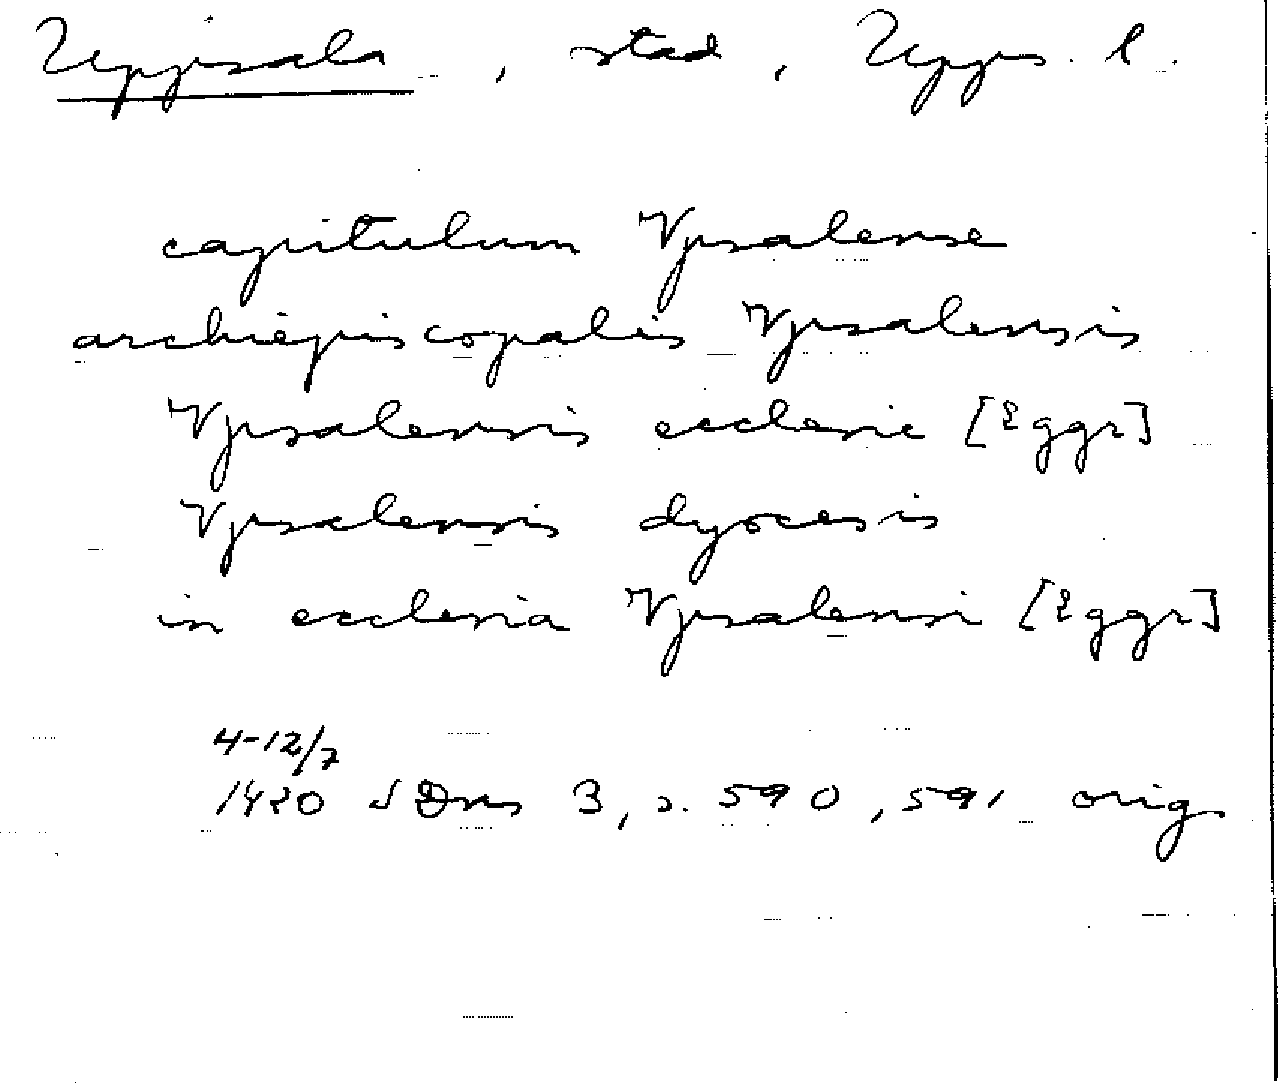 Uppsala, stad, Upps. l.
capitulum Vpsalense
archiepiscopalis Vpsalensis
Vpsalensis ecclesie [2 ggr]
Vpsalensis dyocesis
in ecclesia Vpsalensi [2 ggr]
4-12/7
1420 SDns 3, s. 590, 591 orig